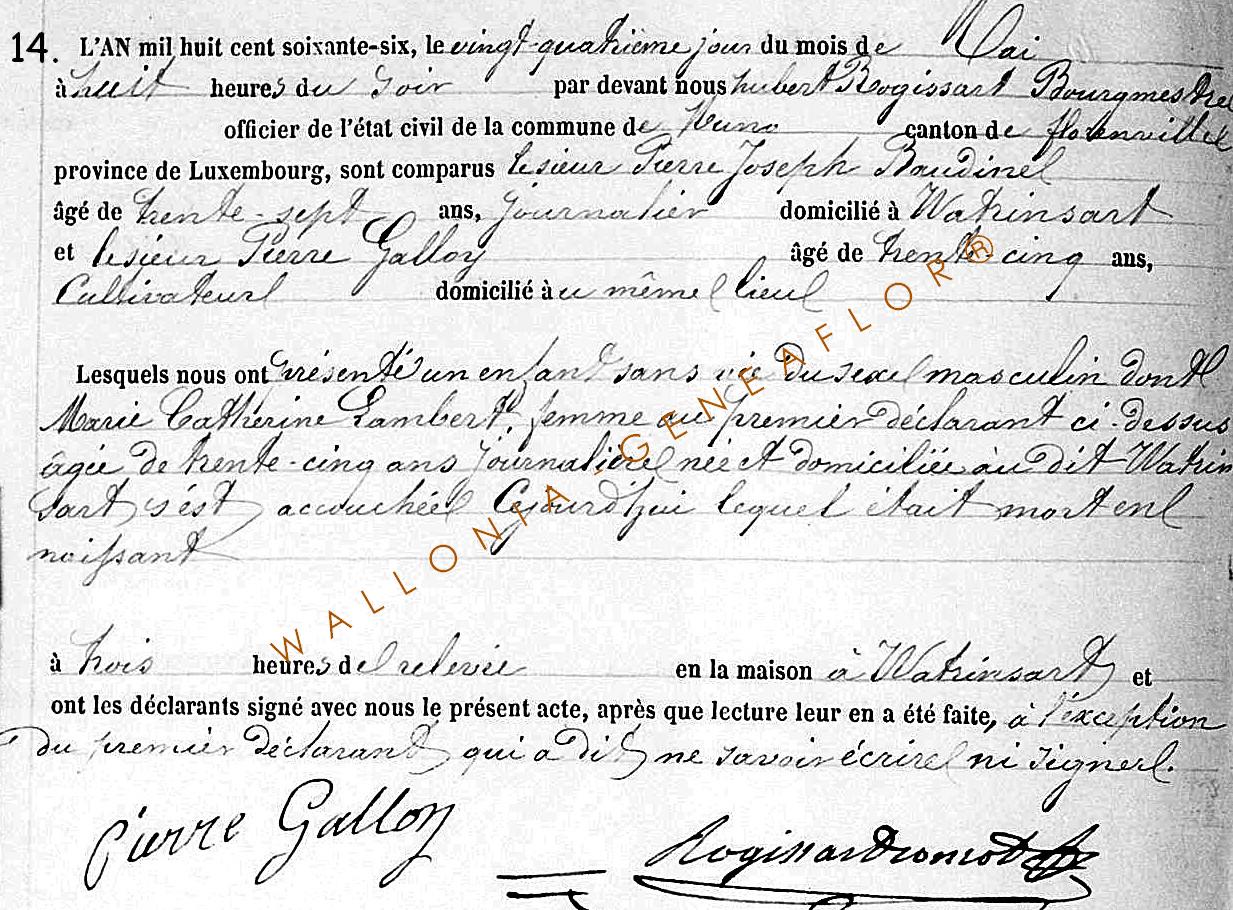 14. L'AN mil huit cent soixante-six, le vingt-quatrième jour du mois de Mai
à huit heures du soir par devant nous hubert Rogissart Bourgmestre
officier de l'état civil de la commune de Muno canton de florenville
province de Luxembourg, sont comparus le sieur Pierre Joseph Baudinet
âgé de trente-sept ans, journalier domicilié à Watrinsart
et le sieur Pierre Galloy âgé de trente-cinq ans,
Cultivateur domicilié au même lieu
Lesquels nous ont présenté un enfant sans vie du sexe masculin dont
Marie Catherine Lambert, femme au premier déclarant ci-dessus
âgée de trente-cinq ans journalière née et domiciliée au dit Watrin
sart s'est accouchée Cejourd'hui lequel était mort en
naissant
à trois heures de relevée en la maison à Watrinsart et
ont les déclarants signé avec nous le présent acte, après que lecture leur en a été faite, à l'exception
du premier déclarant qui a dit ne savoir écrire ni signer.
Pierre Galloy
WALLONIA-GENEAFLOR®